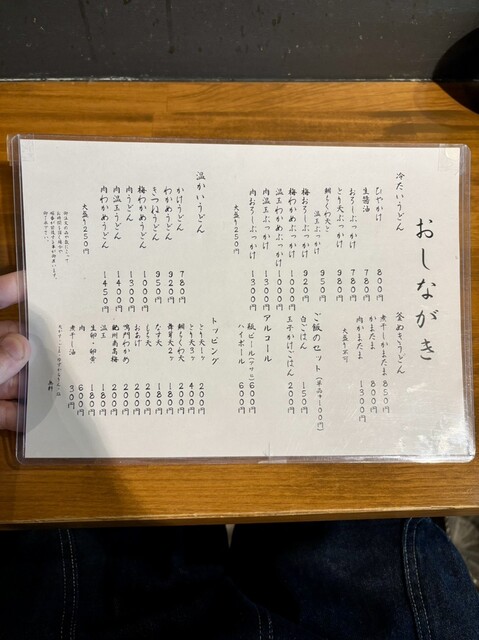 おしながき
冷たいうどん
ひやかけ 800円
生醤油 780円
おろしぶっかけ 780円
とり天ぶっかけ 980円
鯛ちくわ天と
温玉ぶっかけ 950円
梅おろしぶっかけ 920円
梅わかめぶっかけ 1000円
温玉わかめぶっかけ 1000円
肉温玉ぶっかけ 1300円
肉おろしぶっかけ 1300円
大盛り250円
温かいうどん
かけうどん 780円
わかめうどん 920円
きつねうどん 950円
梅わかめうどん 1000円
肉うどん 1300円
肉温玉うどん 1400円
肉わかめうどん 1450円
大盛り250円
釜ぬきうどん
煮干しかまたま 850円
かまたま 800円
肉かまたま 1300円
大盛り不可
ご飯のセット(単品+100円)
白ごはん 150円
玉子かけごはん 200円
アルコール
瓶ビール(アサヒ) 600円
ハイボール 600円
トッピング
とり天1ヶ 200円
とり天3ヶ 400円
鯛ちくわ天 200円
舞茸天2ヶ 180円
なす天 180円
しし天 200円
おあげ 200円
鳴門わかめ 200円
紀州南高梅 200円
温玉 180円
生卵・卵黄 180円
肉 600円
煮干し油 30円